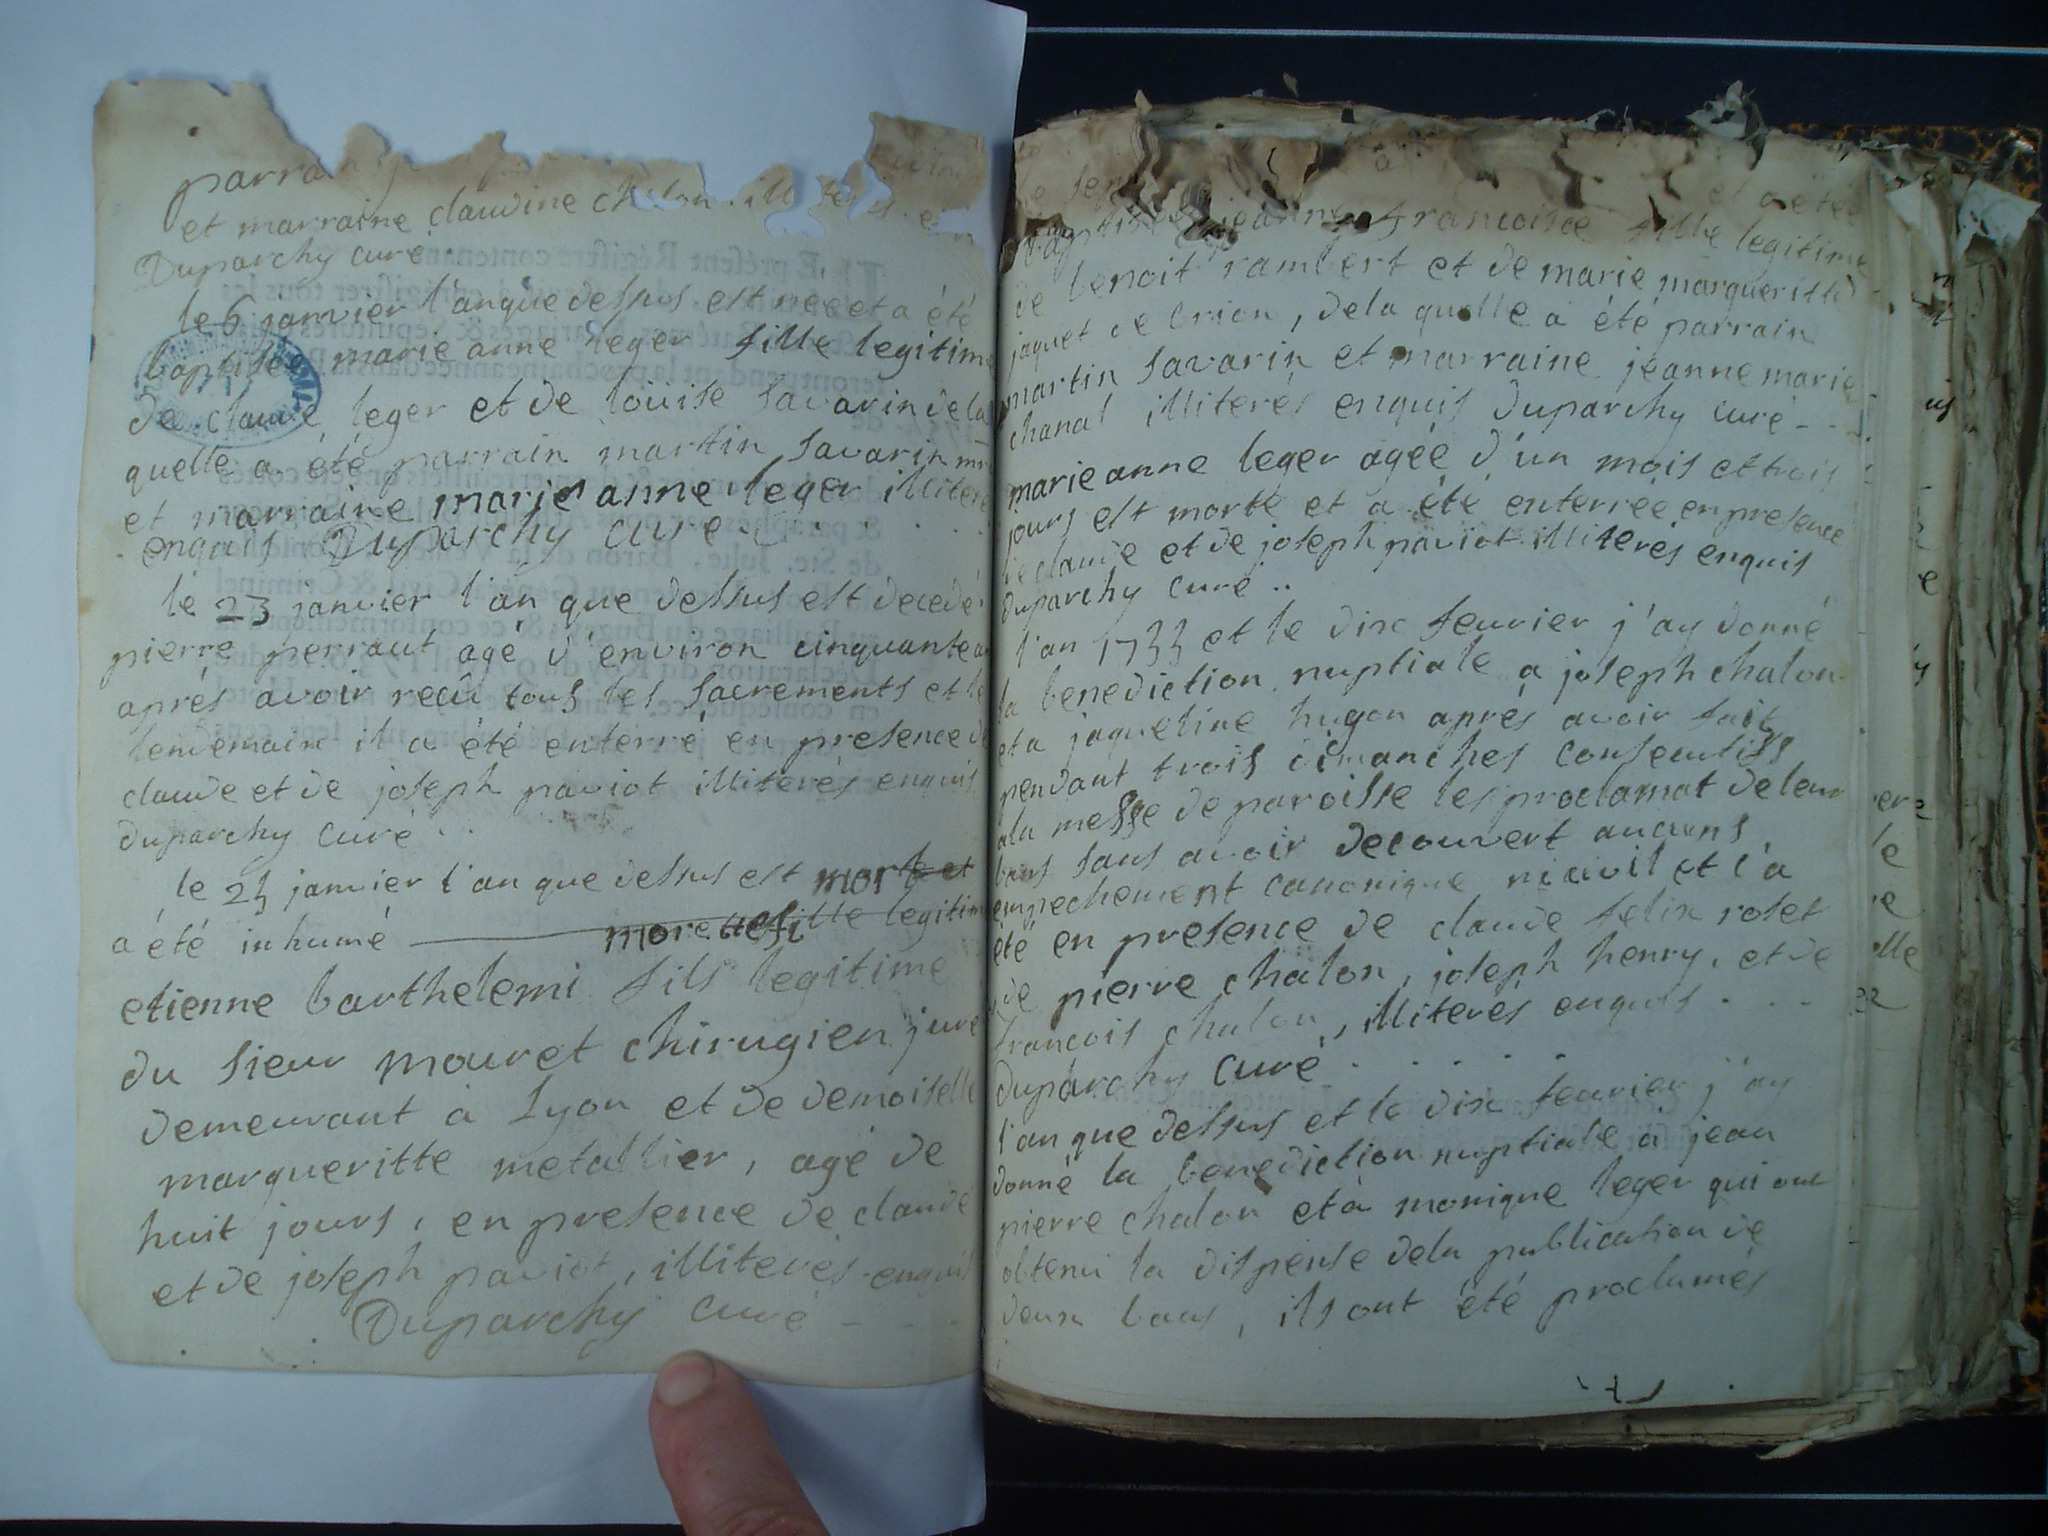 parra
et marraine claudine chalon
Duparchy curé
le 6 janvier l'an que dessus est née et a été
baptisée marie anne leger fille legitime
de claude leger et de loüise savarin de la
quelle a été parrain martin savarin
et marraine marie anne leger illiteré
enquis Duparchy curé
le 23 janvier l'an que dessus est decedé
pierre perraut agé d'environ cinquante
aprés avoir recû tous les sacrements et le
lendemain il a été enterré en presence de
claude et de joseph paviot illiterés enquis
duparchy curé
le 23 janvier l'an que dessus est mort et
a été inhumé fille legitim
etienne barthelemi fils legitime
du sieur mouret chirugien juré
demeurant a Lyon et de demoiselle
margueritte metallier, agé de
huit jours, en presence de claude
et de joseph paviot, illiterés enquis
Duparchy curé
et a été
baptisée jeanne francoise fille legitime
de benoit rambert et de marie margueritte
jaquet de brion, de la quelle a été parrain
martin savarin et marraine jeanne marie
chanal illiterés enquis duparchy curé
marie anne leger agée d'un mois et trois
jours est morte et a été enterrée en presence
de claude et de joseph paviot illiterés enquis
duparchy curé
l'an 1733 et le dix feuvrier j'ay donné
la benediction nuptiale a joseph chalon
et a jaqueline hugon aprés avoir fait
pendant trois dimanches consecutifs
a la messe de paroisse les proclamat de leur
bans sans avoir decouvert aucuns
empechement canonique ni civil et l'a
été en presence de claude felix roset
de pierre chalon, joseph henry, et de
francois chalon, illiterés enquis
duparchy curé
l'an que dessus et le dix feuvrier j'ay
donné la benediction nuptiale a jean
pierre chalon et à monique leger qui ont
obtenu la dispense de la publication de
deux bans, ils ont été proclamés